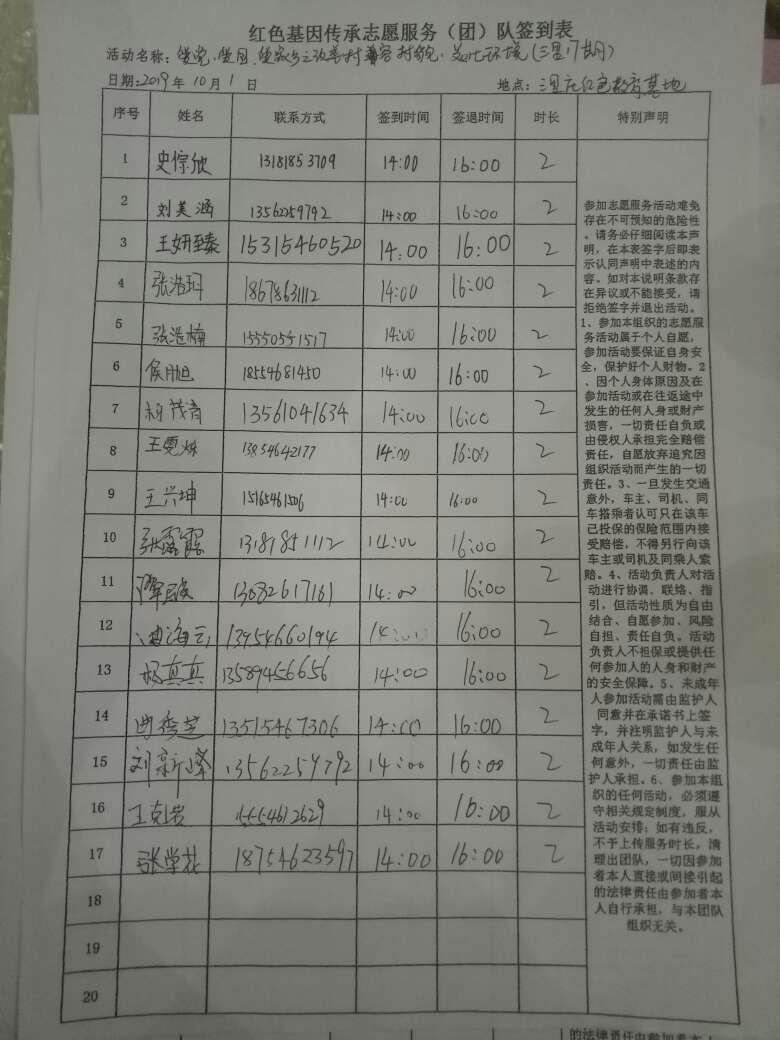 红色基因传承志愿服务（团）队签到表
活动名称：爱党、爱国、爱家乡之改善村容村貌，美化环境（三里庄17期）
日期：2019年10月1日 地点：三里庄红色教育基地
序号 姓名 联系方式 签到时间 签退时间 时长 特别声明
1 史倧欣 13181853709 14:00 16:00 2
2 刘美涵 13562259792 14:00 16:00 2
3 王妍臻 15315460520 14:00 16:00 2
4 张浩玥 18678631112 14:00 16:00 2
5 张浩楠 15550551517 14:00 16:00 2
6 侯旭 18554681450 14:00 16:00 2
7 茂青 13561041634 14:00 16:00 2
8 王雯烁 13854642177 14:00 16:00 2
9 王兴坤 15165461506 14:00 16:00 2
10 张露露 13181851112 14:00 16:00 2
11 13682617161 14:00 16:00 2
12 海云 13954660194 14:00 16:00 2
13 杨真真 13589456656 14:00 16:00 2
14 曹秀芝 13515467306 14:00 16:00 2
15 刘新峰 13562259792 14:00 16:00 2
16 王克岩 15554612629 14:00 16:00 2
17 张学花 18754623597 14:00 16:00 2
18
19
20
参加志愿服务活动难免
存在不可预知的危险性
，请务必仔细阅读本声
明，在本表签字后即表
示认同声明中表述的内
容。如对本说明条款存
在异议或不能接受，请
拒绝签字并退出活动。
1、参加本组织的志愿服
务活动属于个人自愿，
参加活动要保证自身安
全，保护好个人财物。2
、因个人身体原因及在
参加活动或在往返途中
发生的任何人身或财产
损害，一切责任自负或
由侵权人承担完全赔偿
责任，自愿放弃追究因
组织活动而产生的一切
责任。3、一旦发生交通
意外，车主、司机、同
车搭乘者认可只在该车
已投保的保险范围内接
受赔偿，不得另行向该
车主或司机及同乘人索
赔。4、活动负责人对活
动进行协调、联络、指
引，但活动性质为自由
结合、自愿参加、风险
自担、责任自负。活动
负责人不担保或提供任
何参加人的人身和财产
的安全保障。5、未成年
人参加活动需由监护人
同意并在承诺书上签
字，并注明监护人与未
成年人关系，如发生任
何意外，一切责任由监
护人承担。6、参加本组
织的任何活动，必须遵
守相关规定制度，服从
活动安排；如有违反，
不予上传服务时长，清
理出团队，一切因参加
者本人直接或间接引起
的法律责任由参加者本
人自行承担，与本团队
组织无关。
的法律责任由参加者本人